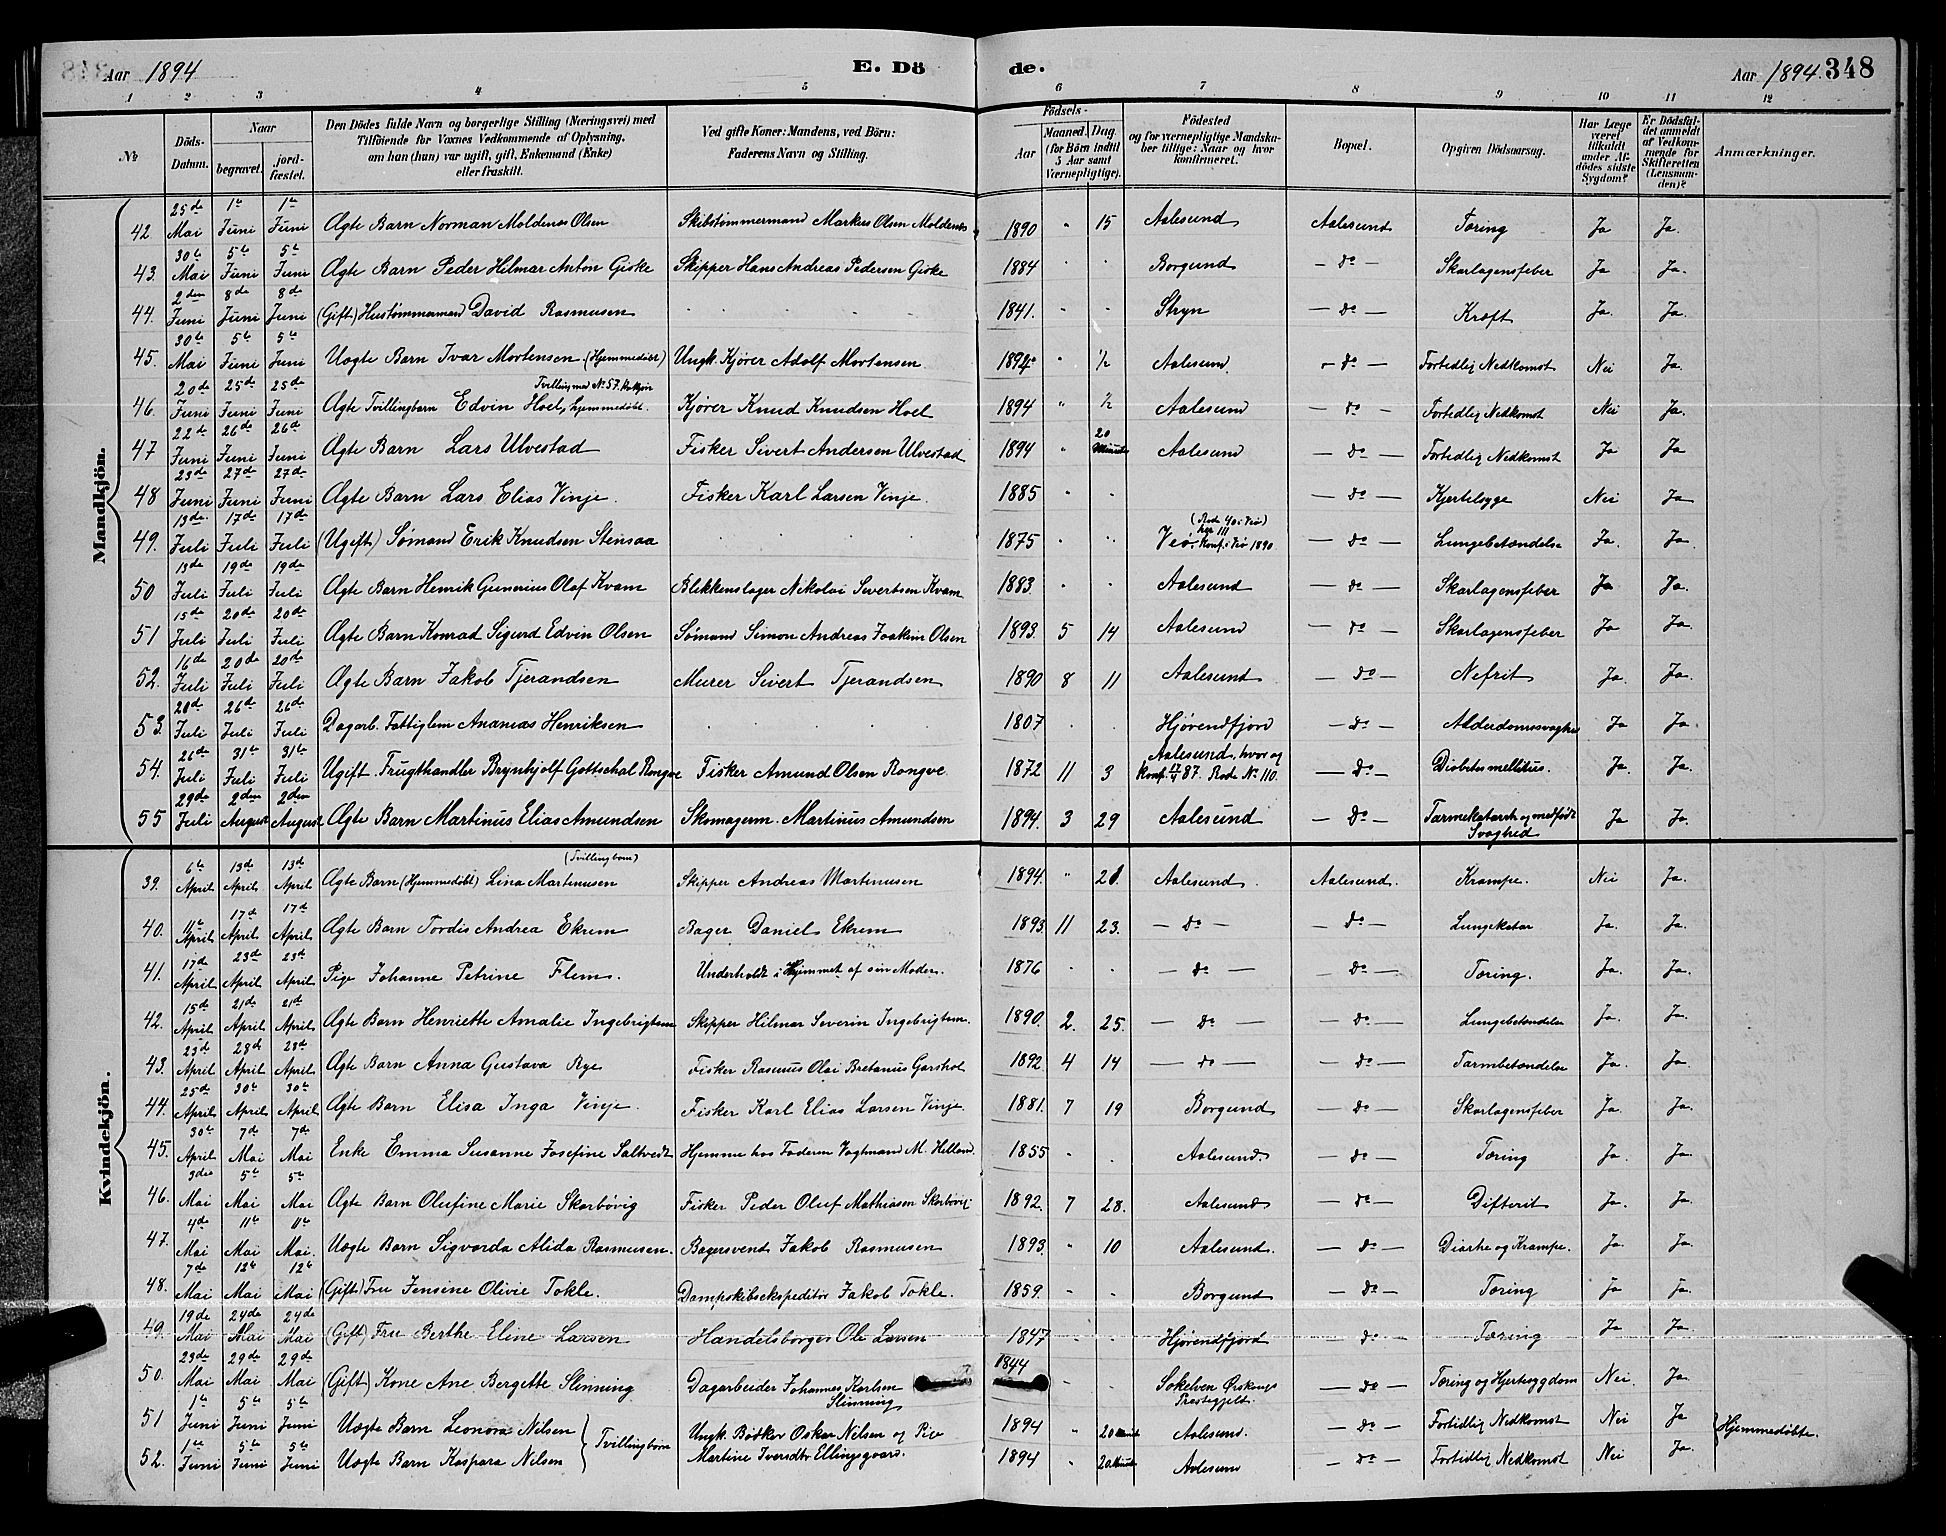 Aar 1894 E. Dö de. Aar 1894. 348
1 2 3 4 5 6 7 8 9 10 11 12
No
Döds-Datum.
Naar
begravet.
jord-fæstet.
Den Dödes fulde Navn og borgerlige Stilling (Næringsvei) med
Tilföiende for Voxnes Vedkommende af Oplysning,
om han (hun) var ugift, gift, Enkemand (Enke)
eller fraskilt.
Ved gifte Koner: Mandens, ved Börn:
Faderens Navn og Stilling.
Födsels-
Aar
Maaned. Dag.
(for Börn indtil
5 Aar samt
Værnepligtige).
Födested
og for værnepligtige Mandska-
ber tillige: Naar og hvor
konfirmeret.
Bopæl.
Opgiven Dödsaarsag.
Har Læge
været
tilkaldt
under Af-
dödes sidste
Sygdom?
Er Dödsfal-
det anmeldt
af Vedkom-
mende for
Skifteretten
(Lensman-
den)?
Anmærkninger.
Mandkjön.
42 25de Mai 1te Juni 1te Juni Ægte Barn Norman Moldenæs Olsen Skibstömmermand Markus Olsen Moldenæs 1890 " 15 Aalesund Aalesund Tæring Ja Ja.
43. 30te Mai 5te Juni 5te Juni Ægte Barn Peder Hilmar Anton Giske Skipper Hans Andreas Pedersen Giske 1884 " " Borgund — Do — Skarlagensfeber Ja Ja.
44. 2den Juni 8de Juni 8de Juni (Gift) Hustömmermand David Rasmusen 1841. " " Stryn — Do — Kræft Ja. Ja.
45. 30te Mai 5te Juni 5te Juni Uægte Barn Ivar Mortensen (Hjemmedöbt) Ungk. Kjører Adolf Mortensen. 1894 " 1/2 Aalesund. — Do — Fortidlig Nedkomst Nei Ja.
46. 20de Juni 25de Juni 25de Juni Ægte Tvillingbarn Edvin Hoel, hjemmedöbt. Tvilling med No 57. Kvkjön Kjører Knud Knudsen Hoel 1894 " 1/2 Aalesund — Do — Fortidlig Nedkomst Nei Ja.
47 22de Juni 26de Juni 26de Juni Ægte Barn Lars Ulvestad Fisker Sivert Andersen Ulvestad 1894 " 20 Minuter Aalesund — Do — Fortidlig Nedkomst Ja Ja
48 23de Juni 27de Juni 27de Juni Ægte Barn Lars Elias Vinje. Fisker Karl Larsen Vinje. 1885 " " — Do — Kjertelsyge Nei Ja
49. 13de Juli 17de Juli 17de Juli (Ugift) Sømand Erik Knudsen Stensaa 1875 " " Veø. Konf. i Veø 1890 — Do — Lungebetændelse Ja. Ja.
50 13de Juli 19de Juli 19de Juli Ægte Barn Henrik Gunerius Olaf Kvam Blikkenslager Nikolai Sivertsen Kvam 1883. " " Aalesund — Do — Skarlagensfeber Ja Ja.
51 15de Juli 20de Juli 20de Juli Ægte Barn Konrad Sigurd Edvin Olsen Sømand Simon Andreas Joakim Olsen 1893. 5 14 Aalesund — Do — Skarlagensfeber Ja Ja.
52. 16de Juli 20de Juli 20de Juli Ægte Barn Jakob Tjerandsen Murer Sivert Tjerandsen 1890 8 11 Aalesund — Do — Nefrit Ja. Ja.
53. 20de Juli 26de Juli 26de Juli Dagarb. Fattiglem Ananias Henriksen 1807 " Hjörendfjord — Do — Alderdomssvaghed Ja Ja.
54. 26de Juli 31te Juli 31te Juli Ugift. Frugthandler Brynhjolf Gottschal Rongve Fisker Amund Olsen Rongve 1872 11 3 Aalesund, hvor og Konf. 87. Rode No 110. — Do — Diabetes mellitus. Ja. Ja.
55 29de Juli 2den August 2den August Ægte Barn Martinus Elias Amundsen Skomagerm. Martinus Amundsen 1894. 3 29 Aalesund — Do — Tarmekatarrh og medfødt Svaghed Ja Ja.
Kvindekjön.
39. 6te April 13de April 13de April Ægte Barn (Hjemmedöbt) Lina Martinusen (Tvillingbarn) Skipper Andreas Martinusen 1894. " 21. Aalesund. Aalesund. Krampe. Nei Ja.
40. 11te April 17de April 17de April Ægte Barn Tordis Andrea Ekrem Bager Daniel Ekrem 1893. 11 23. — Do — — Do — Lungekatar Ja. Ja.
41. 17de April 23de April 23de April Pige Johanne Petrine Flem. Underholdt i Hjemmet af sin Moder. 1876 " " — Do — — Do — Tæring. Ja. Ja.
42. 15de April 21de April 21de April Ægte Barn Henriette Amalie Ingebrigtsen Skipper Hilmar Severin Ingebrigtsen. 1890. 2. 25. — Do — — Do — Lungebetændelse Ja. Ja.
43. 23de April 28de April 28de April Ægte Barn Anna Gustava Rye Fisker Rasmus Olai Bretanus Garshol 1892 4 14 — Do — — Do — Tarmbetændelse Ja. Ja.
44. 25de April 30te April 30te April Ægte Barn Elisa Inga Vinje. Fisker Karl Elias Larsen Vinje. 1881. 7 19 Borgund — Do — Skarlagensfeber Ja. Ja.
45. 30te April 7de Mai 7de Mai Enke Emma Susanne Josefine Saltvedt Hjemme hos Faderen Vogtmand M. Helland. 1855 " . Aalesund. — Do — Tæring Ja. Ja.
46. 3die Mai 5te Mai 5te Mai Ægte Barn Olufine Marie Skorbövig Fisker Peder Oluf Mathiasen Skorbövig 1892. 7 28. Aalesund — Do — Difterit Ja. Ja.
47. 4de Mai 11te Mai 11te Mai. Uægte Barn Sigvarda Alida Rasmusen. Bagersvend Jakob Rasmusen 1893. " 10 Aalesund. — Do — Diarhe og Krampe. Ja. Ja.
48. 7de Mai 12te Mai 12te Mai (Gift) Fru Jensine Olivie Tokle. Dampskibsekspeditör Jakob Tokle. 1859. " " Borgund — Do — Tæring Ja Ja.
49. 19de Mai 24de Mai 24de Mai (Gift) Fru Berthe Eline Larsen Handelsborger Ole Larsen 1847 " . Hjörendfjord — Do — Tæring Ja Ja.
50. 23de Mai 29de Mai 29de Mai (Gift) Kone Ane Bergette Slinning Dagarbeider Johannes Karlsen Slinning 1844 " " Sökelven Ørskougs Prestegjeld. — Do — Tæring og Hjertesygdom Nei. Ja.
51 1te Juni 5te Juni 5te Juni Uægte Barn Leonora Nilsen } Tvillingbørn Ungk. Bödker Oskar Nilsen og Pige 1894 " 20 Minut Aalesund. — Do — Fortidlig Nedkomst Nei Ja } Hjemmedöbte.
52. 1te Juni 5te Juni 5te Juni Uægte Barn Kaspara Nilsen Martine Iversdtr Ellingsgaard. 1894 " 20 Minut Aalesund — Do — Fortidlig Nedkomst Nei Ja.